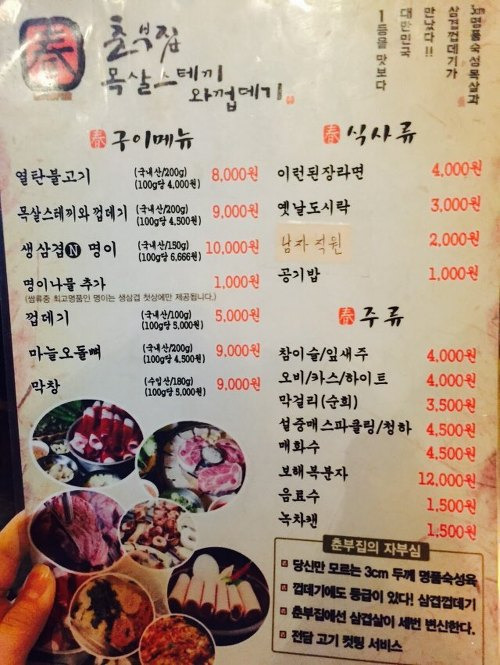 春
춘부집
목살스테끼
와껍데기
3cm명품숙성목살과
삼겹껍데기가
만났다!!
대한민국
1등을 맛보다
春 구이메뉴
열탄불고기 (국내산/200g) 8,000원
(100g당 4,000원)
목살스테끼와 껍데기 (국내산/200g) 9,000원
(100g당 4,500원)
생삼겹N 명이 (국내산/150g) 10,000원
(100g당 6,666원)
명이나물 추가 1,000원
(쌈류중 최고명품인 명이는 생삼겹 첫상에만 제공됩니다.)
껍데기 (국내산/100g) 5,000원
(100g당 5,000원)
마늘오돌뼈 (국내산/200g) 9,000원
(100g당 4,500원)
막창 (수입산/180g) 9,000원
(100g당 5,000원)
春 식사류
이런된장라면 4,000원
옛날도시락 3,000원
남자직원 2,000원
공기밥 1,000원
春 주류
참이슬/잎새주 4,000원
오비/카스/하이트 4,000원
막걸리(순희) 3,500원
설중매스파클링/청하 4,500원
매화수 4,500원
보해복분자 12,000원
음료수 1,500원
녹차캔 1,500원
춘부집의 자부심
당신만 모르는 3cm 두께 명품숙성육
껍데기에도 등급이 있다! 삼겹껍데기
춘부집에선 삼겹살이 세번 변신한다.
전담 고기 컷팅 서비스